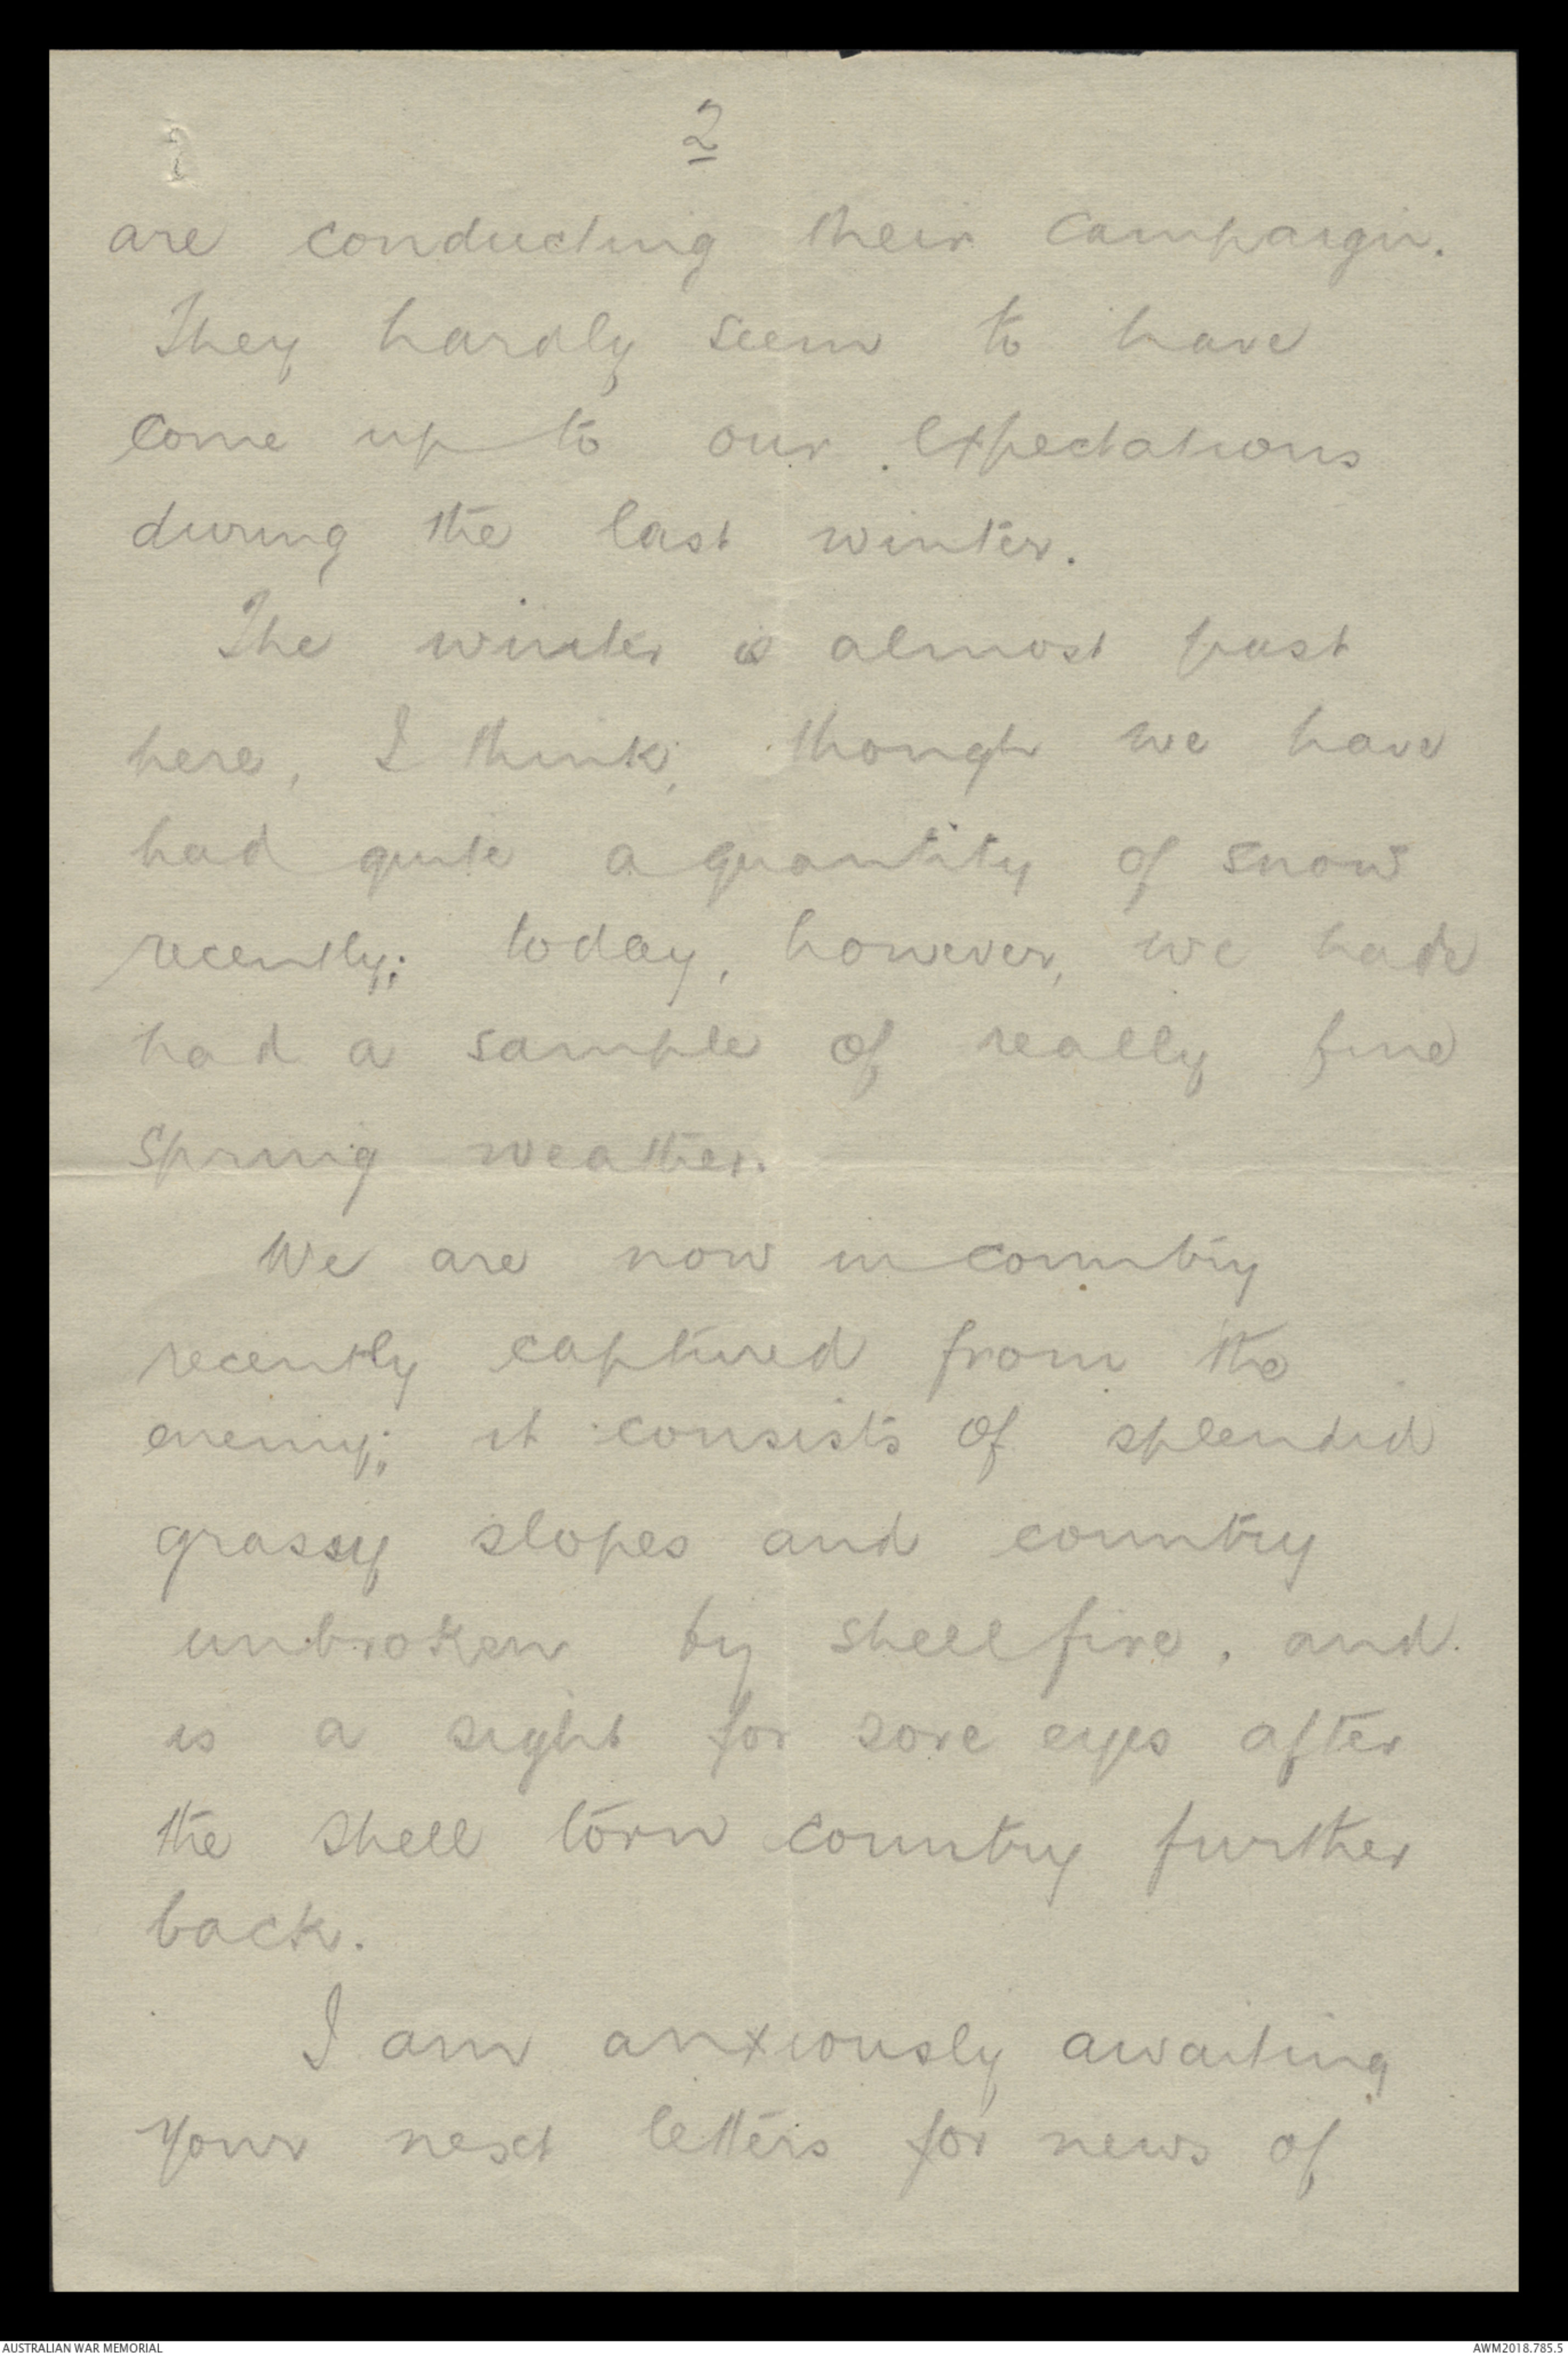 2
are conducting their campaign.
They hardly seem to have
come up to our expectations
during the last winter.
The winter is almost past
here, I think, though we have
had quite a quantity of snow
recently; today, however, we have
had a sample of really fine
spring weather.
We are now in country
recently captured from the
enemy; it consists of splendid
grassy slopes and country
unbroken by shellfire, and
is a sight for sore eyes after
the shell torn country further
back.
I am anxiously awaiting
your next letters for news of
AUSTRALIAN WAR MEMORIAL
AWM2018.785.5